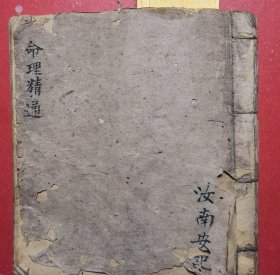 命理精通
汝南安記